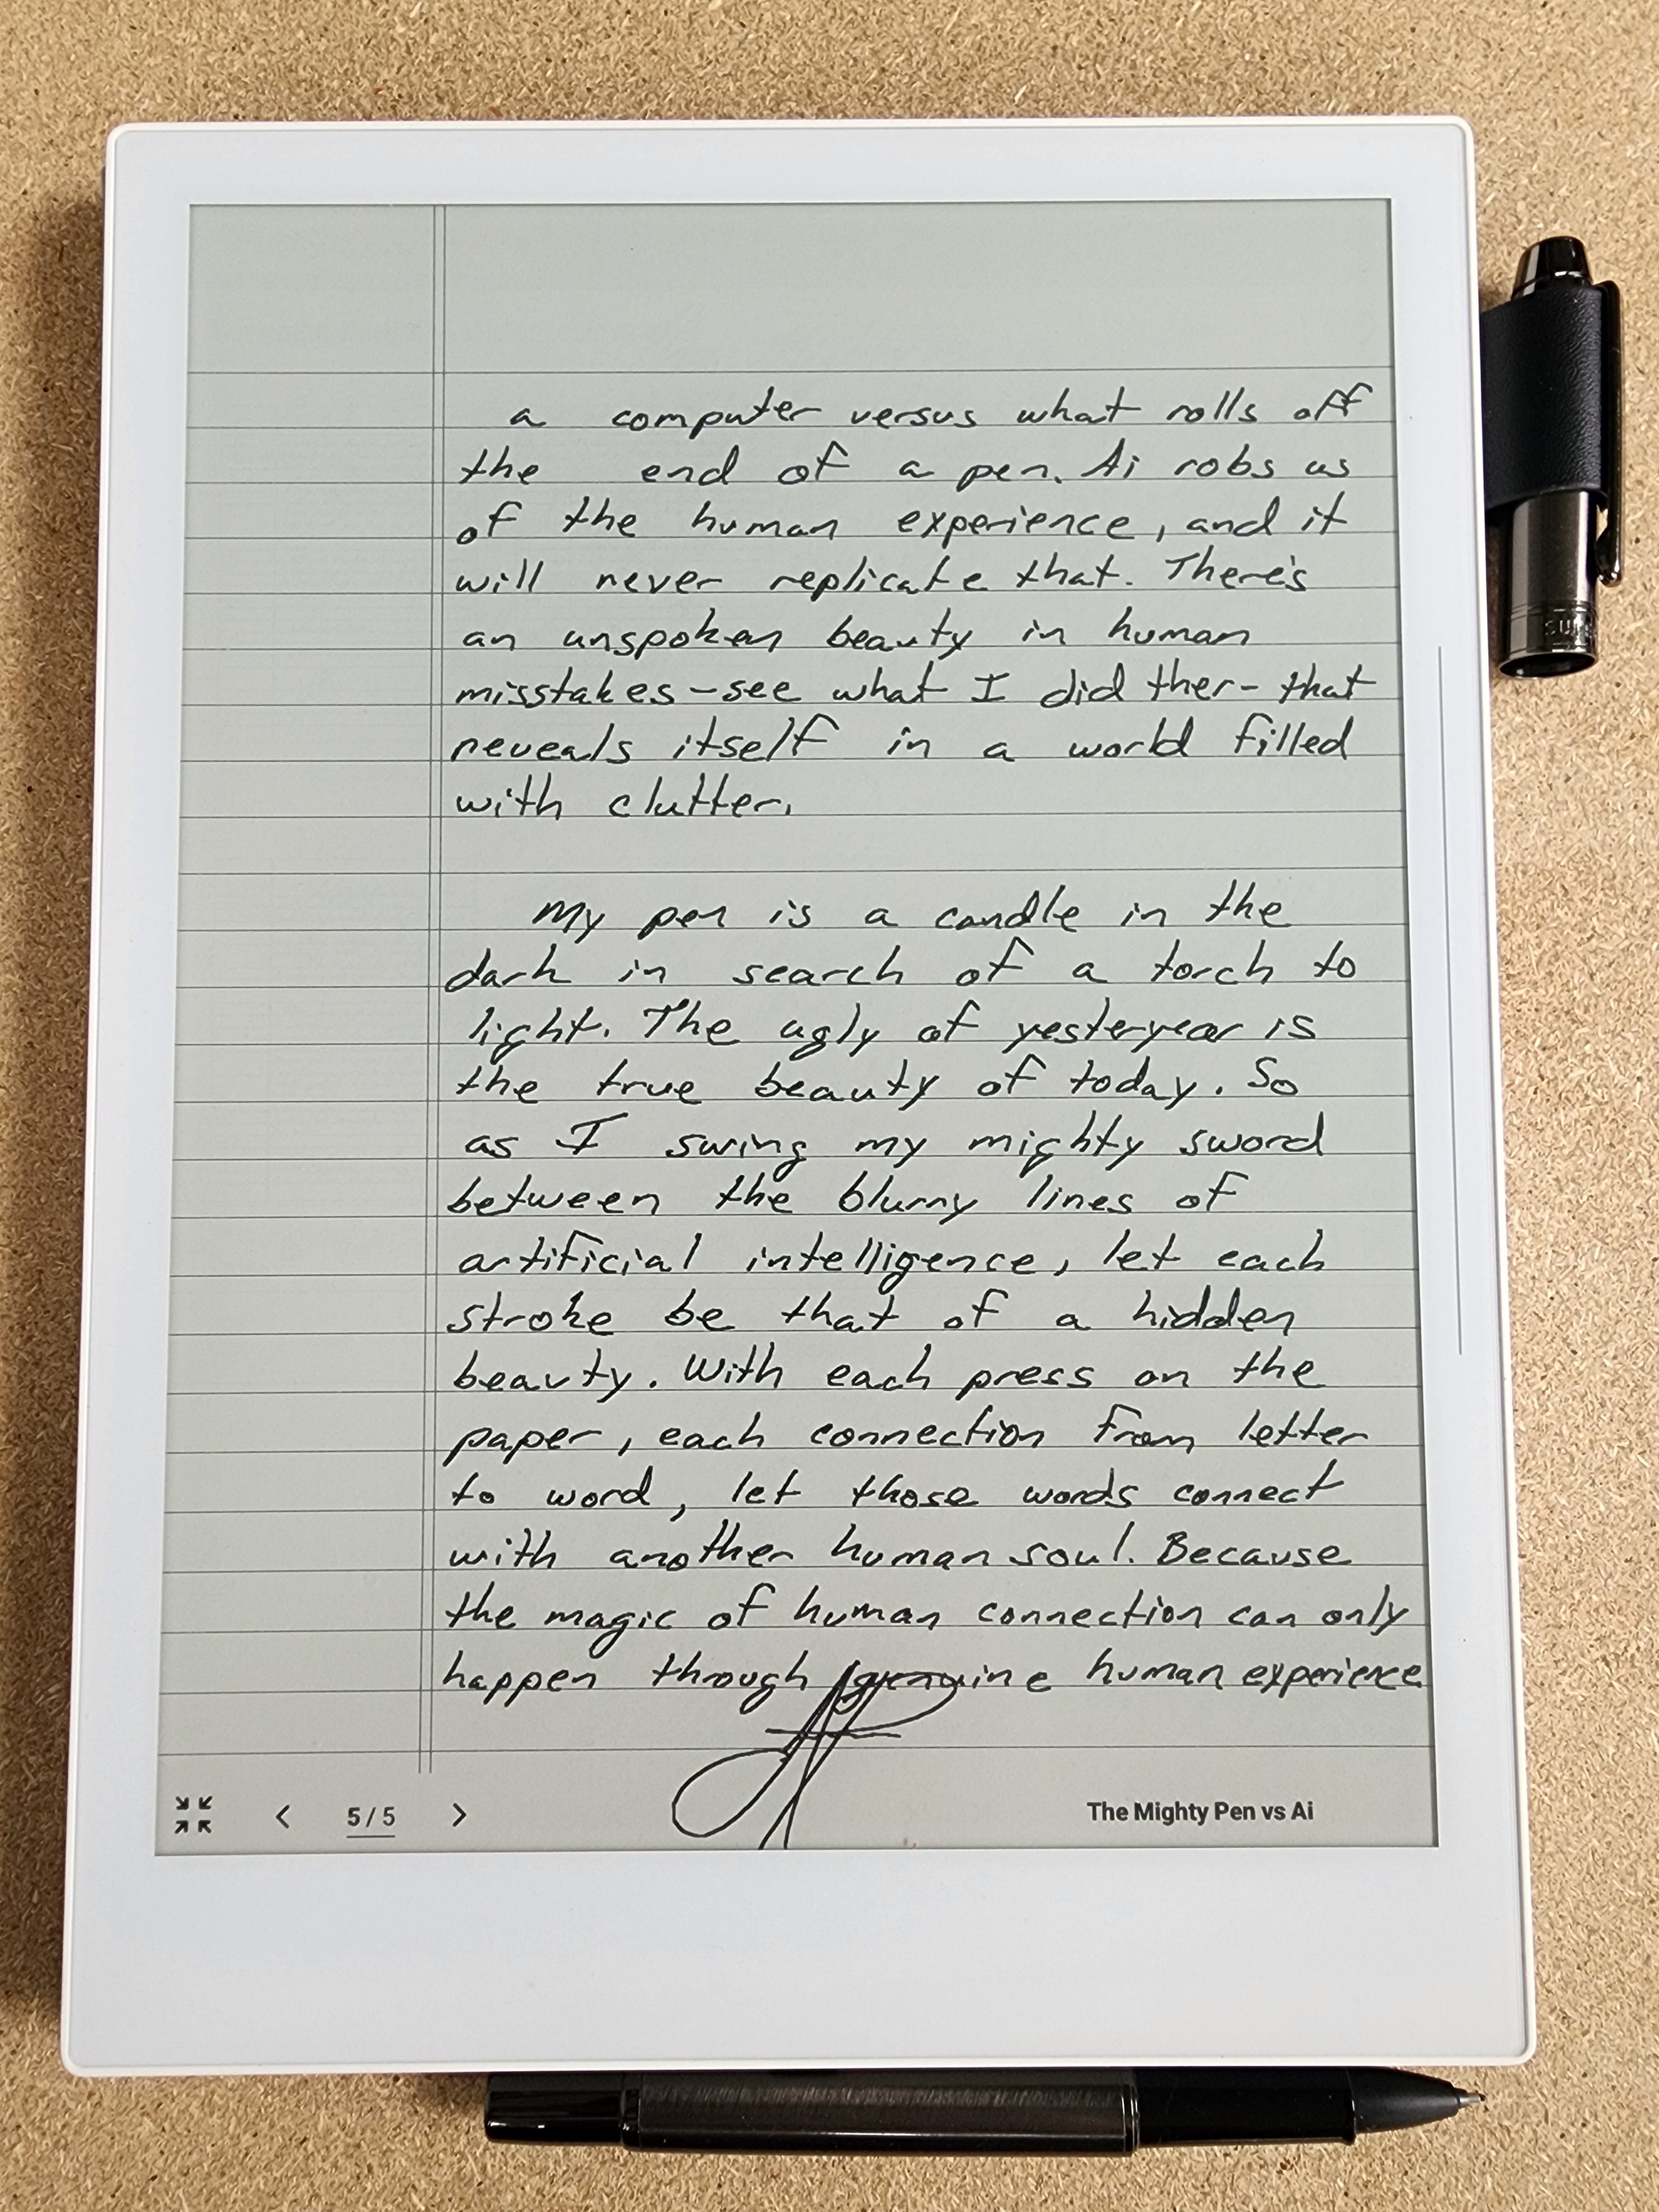 a computer versus what rolls off
the end of a pen. Ai robs us
of the human experience, and it
will never replicate that. There's
an unspoken beauty in human
misstakes-see what I did ther- that
reveals itself in a world filled
with clutter.
My pen is a candle in the
dark in search of a torch to
light. The ugly of yesteryear is
the true beauty of today. So
as I swing my mighty sword
between the blurry lines of
artificial intelligence, let each
stroke be that of a hidden
beauty. With each press on the
paper, each connection from letter
to word, let those words connect
with another human soul. Because
the magic of human connection can only
happen through genuine human experience
5/5
The Mighty Pen vs Ai